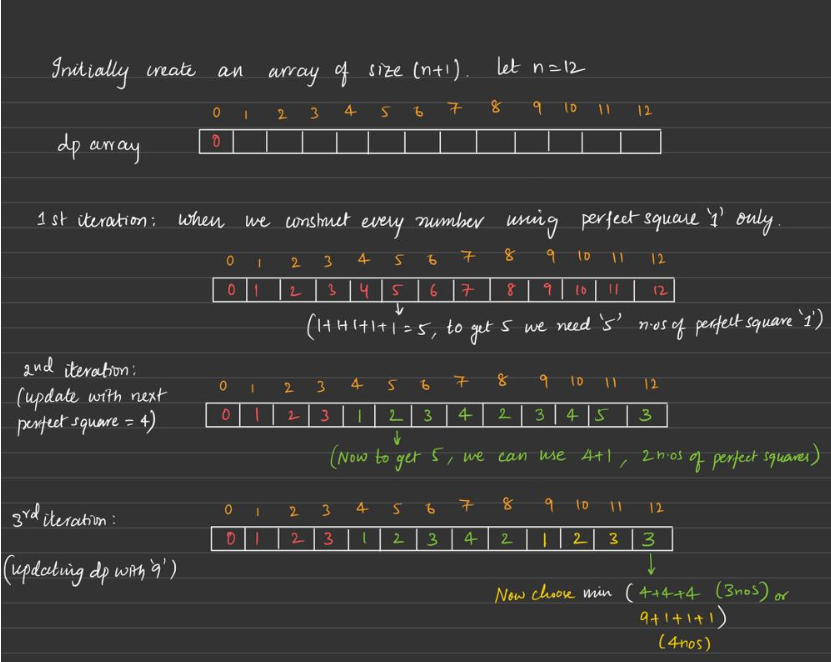 Initially create an array of size (n+1). let n=12
0 1 2 3 4 5 6 7 8 9 10 11 12
dp array 0
1st iteration: when we construct every number using perfect square '1' only.
0 1 2 3 4 5 6 7 8 9 10 11 12
0 1 2 3 4 5 6 7 8 9 10 11 12
(1+1+1+1+1=5, to get 5 we need '5' n.os of perfect square '1')
2nd iteration:
(update with next
perfect square = 4)
0 1 2 3 4 5 6 7 8 9 10 11 12
0 1 2 3 1 2 3 4 2 3 4 5 3
(Now to get 5, we can use 4+1, 2 n.os of perfect squares)
3rd iteration:
(updating dp with '9')
0 1 2 3 4 5 6 7 8 9 10 11 12
0 1 2 3 1 2 3 4 2 1 2 3 3
Now choose min (4+4+4 (3nos) or
9+1+1+1)
(4nos)